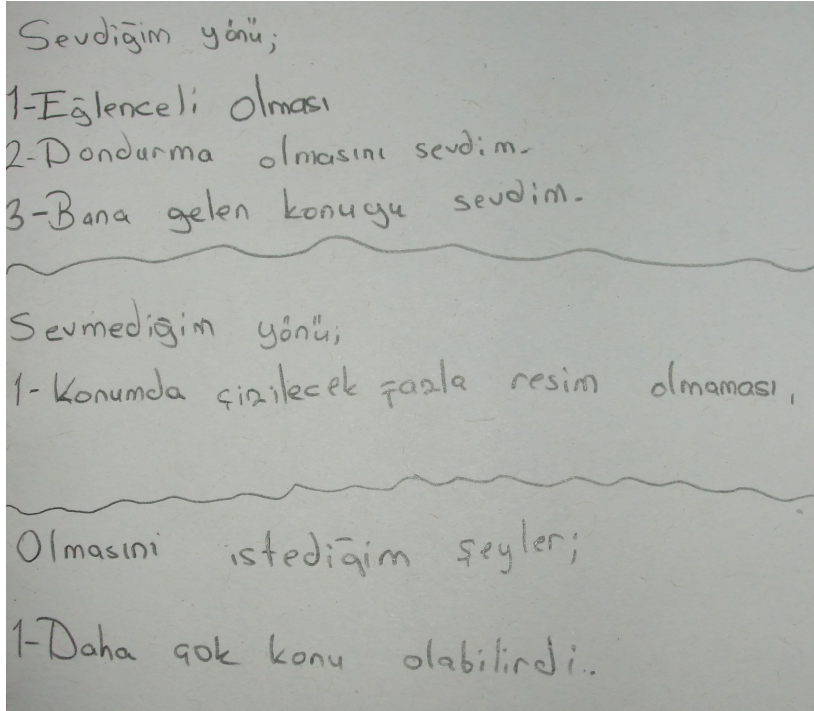 Sevdiğim yönü;
1-Eğlenceli olması
2-Dondurma olmasını sevdim.
3-Bana gelen konuyu sevdim.
Sevmediğim yönü;
1-Konumda çizilecek fazla resim olmaması,
Olmasını istediğim şeyler;
1-Daha çok konu olabilirdi..